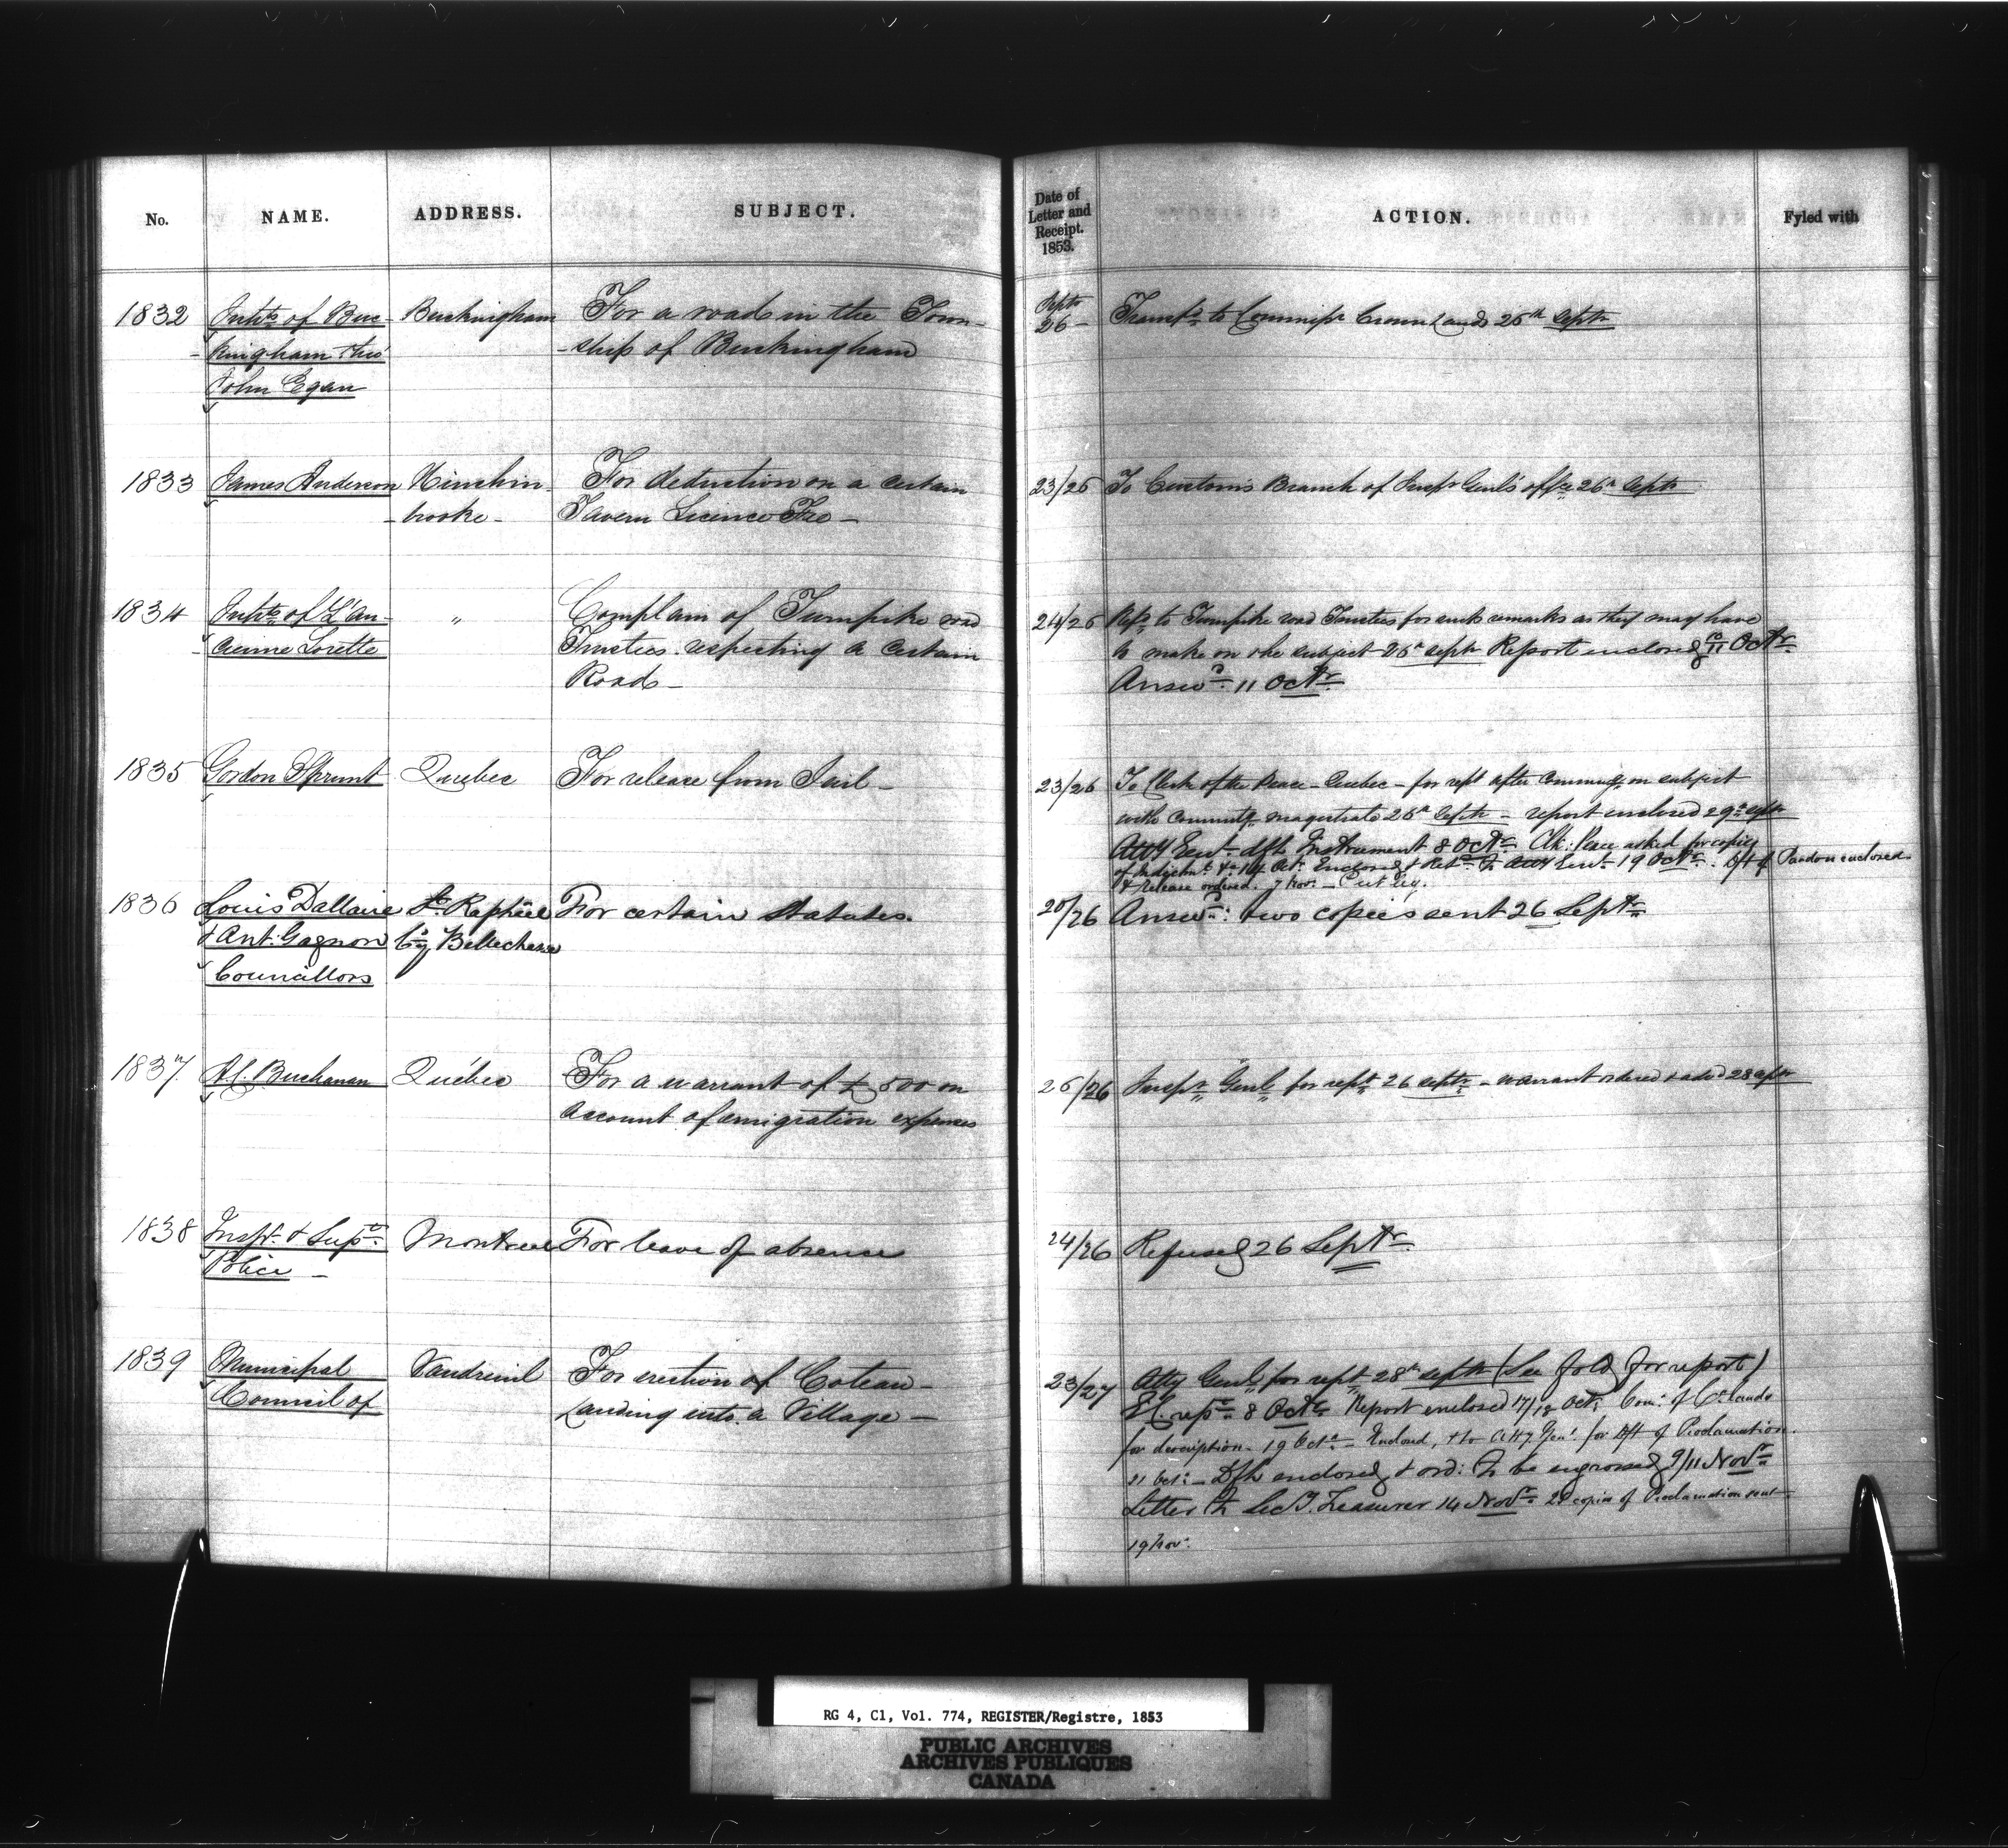 No. NAME. ADDRESS. SUBJECT.
Date of Letter and Receipt. 1853. ACTION. Fyled with
1832 Inhts of Buc- Buckingham For a road in the Town-
-kingham thro' -ship of Buckingham
John Egan
Septr 26 - Transfd to Commissr Crown Lands 26th Septr
1833 James Anderson Hinchin- For deduction on a certain
-brooke - Tavern Licence Fee -
23/26 To Customs Branch of Inspr Genl's office 26th Septr
1834 Inhts of L'An- " Complain of Turnpike road
-cienne Lorette Trustees respecting a certain
Road -
24/26 Refd to Turnpike road Trustees for such remarks as they may have
to make on the subject 26th Septr Report enclosed 10/11 Octr
Answd 11 Octr
1835 Gordon Sprunt Quebec For release from Jail -
23/26 To Clerk of the Peace - Quebec - for rept after commung on subject
with committg magistrate 26th Septr - report enclosed 29th Septr
Atty Genl dft Instrument 8 Octr Clk: Peace asked for copies
of Indictmt &c 14 Octr Enclosed & Retd to Atty Genl 19 Octr. Dft of Pardon enclosed
& release ordered. 7 Novr -
1836 Louis Dallaire St Raphäel For certain Statutes.
& Ant: Gagnon Cy Bellechasse
Councillors
20/26 Answd: two copies sent 26 Septr
1837. A.C. Buchanan Québec For a warrant of £500 on
account of emigration expenses
26/26 Inspr Genl for rept 26 Septr - warrant ordered & advd 28 Septr
1838 Inspr & Supt Montreal For leave of absence
Police -
24/26 Refused 26 Septr
1839 Municipal Vaudreuil For erection of Coteau-
Council of Landing into a Village -
23/27 Atty Genl for rept 28th Septr (See fold for report)
8 Octr Report enclosed 17/18 Octr Com: of Cr. Lands
for description - 19 Octr - Enclosed, & to Atty Genl for Dft of Proclamation.
21 Octr - Dft enclosed & ord: to be engrossed 9/11 Novr
Letter to Sec. Treasurer 14 Novr 20 copies of Proclamation sent
19 Novr.
RG 4, C1, Vol. 774, REGISTER/Registre, 1853
PUBLIC ARCHIVES
ARCHIVES PUBLIQUES
CANADA